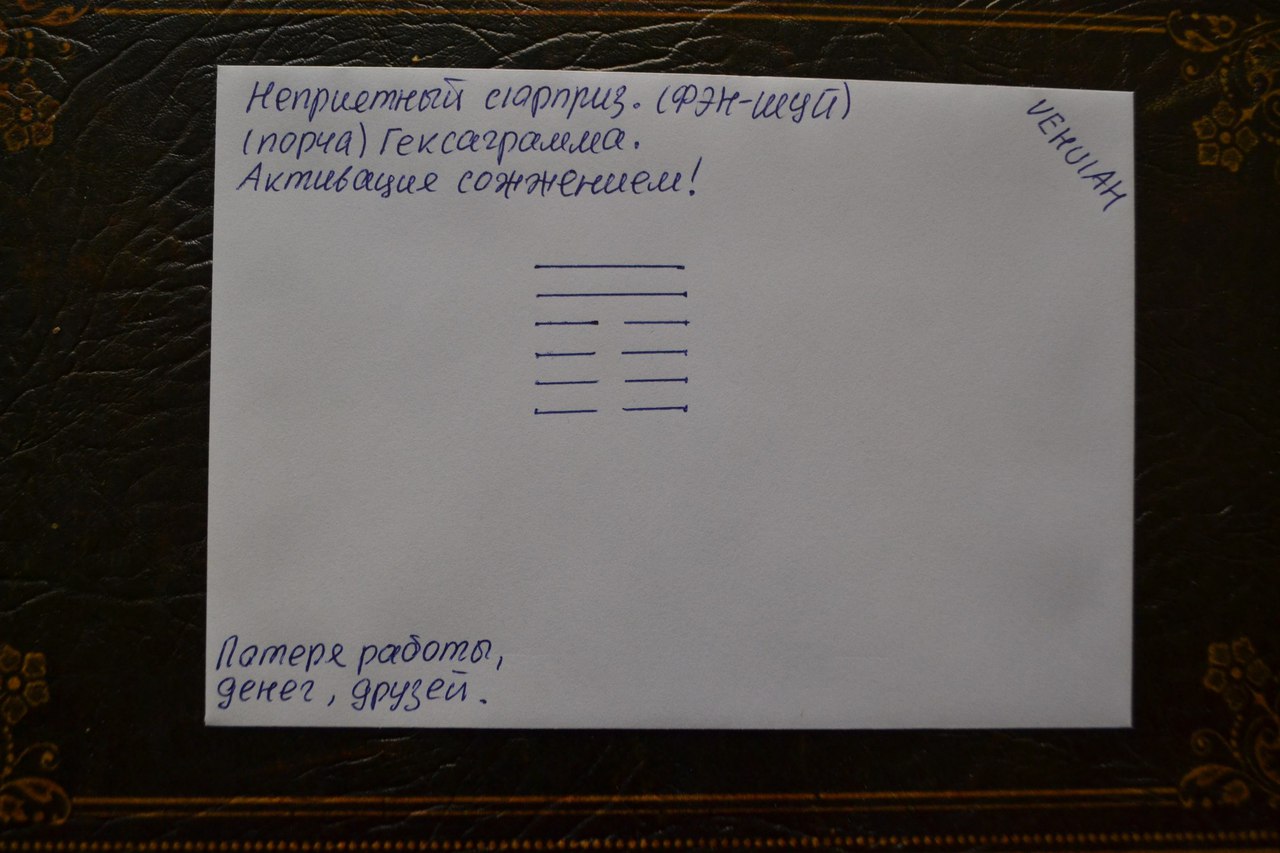 Неприетный сюрприз. (ФЭН-шуй)
(порча) Гексаграмма.
Активация сожжением!
VEHUIAH
Потеря работы,
денег, друзей.